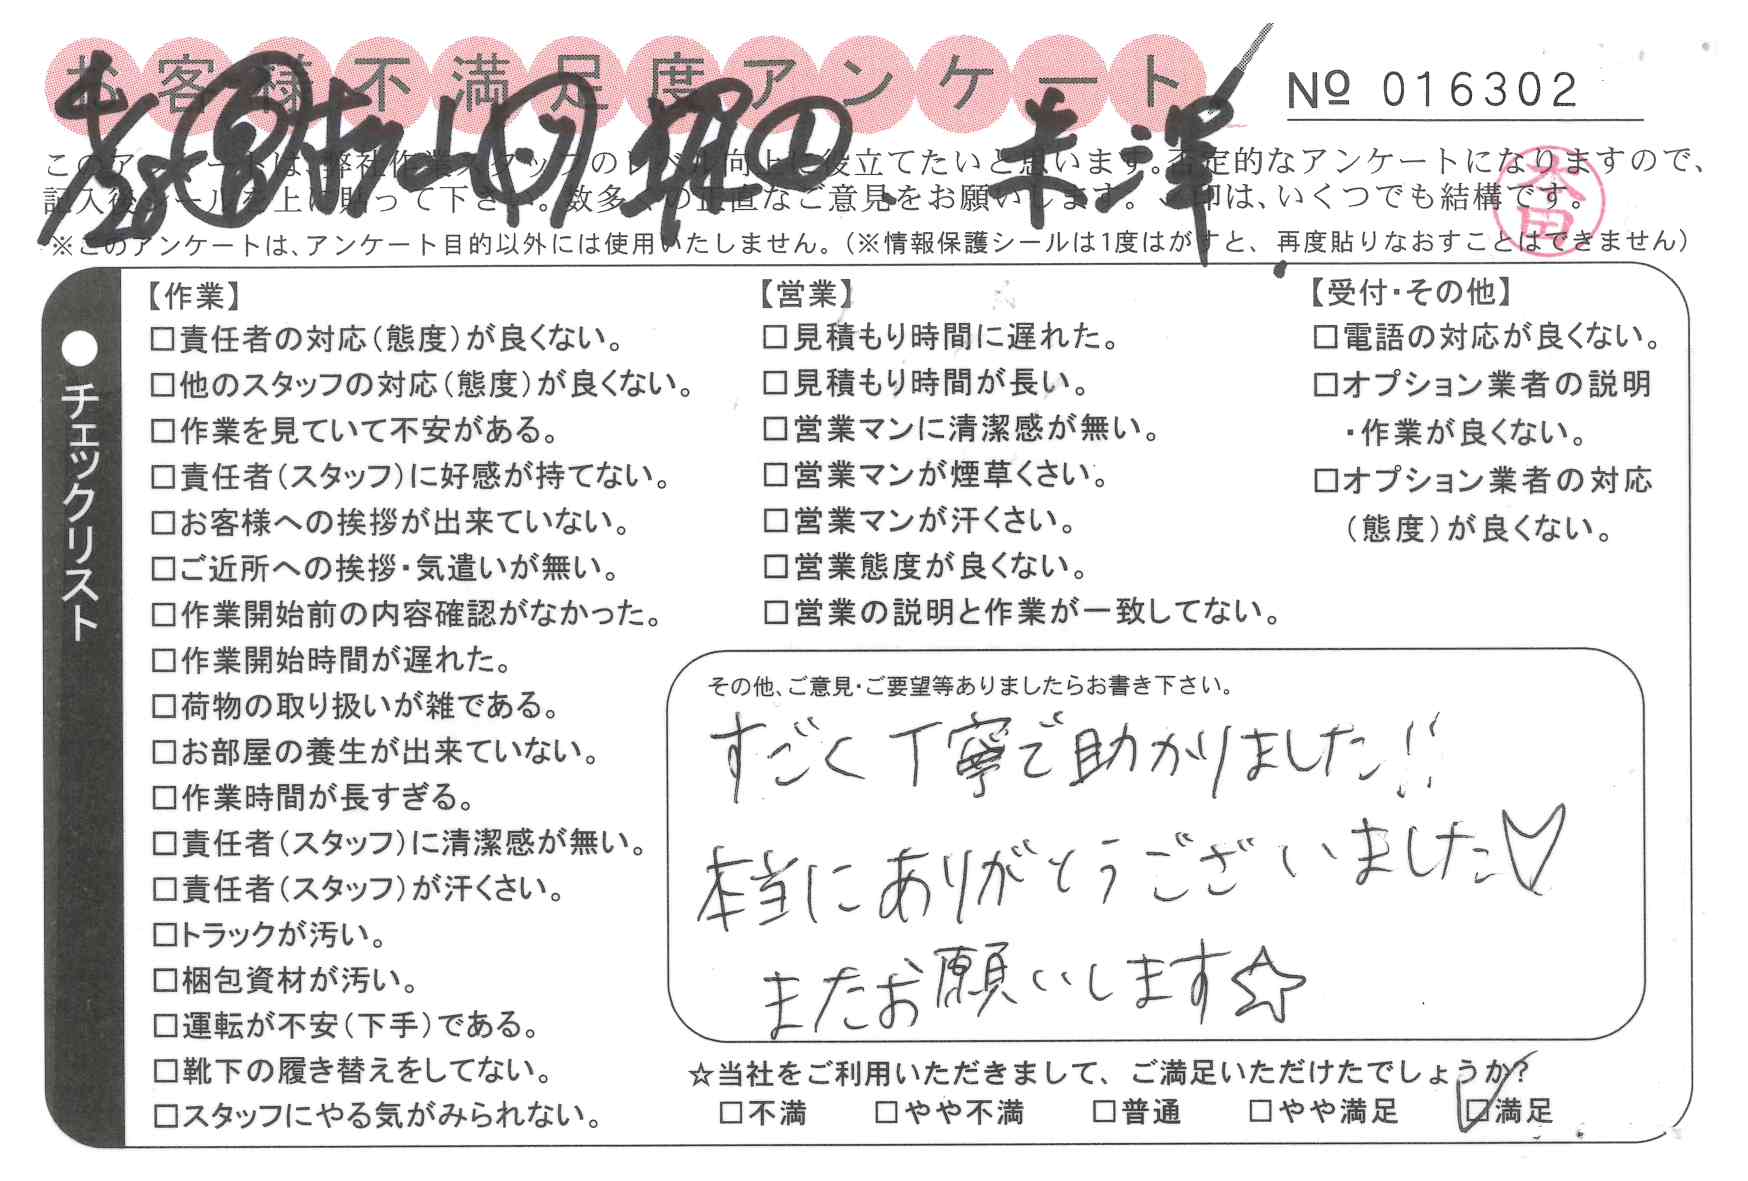 お客様不満足度アンケート
№ 016302
堀田、米澤
このアンケートは、弊社作業スタッフのレベル向上に役立てたいと思います。否定的なアンケートになりますので、
記入後シールを上に貼って下さい。数多くの正直なご意見をお願いします。✓印は、いくつでも結構です。
※このアンケートは、アンケート目的以外には使用いたしません。(※情報保護シールは1度はがすと、再度貼りなおすことはできません)
●チェックリスト
【作業】
□責任者の対応(態度)が良くない。
□他のスタッフの対応(態度)が良くない。
□作業を見ていて不安がある。
□責任者(スタッフ)に好感が持てない。
□お客様への挨拶が出来ていない。
□ご近所への挨拶・気遣いが無い。
□作業開始前の内容確認がなかった。
□作業開始時間が遅れた。
□荷物の取り扱いが雑である。
□お部屋の養生が出来ていない。
□作業時間が長すぎる。
□責任者(スタッフ)に清潔感が無い。
□責任者(スタッフ)が汗くさい。
□トラックが汚い。
□梱包資材が汚い。
□運転が不安(下手)である。
□靴下の履き替えをしてない。
□スタッフにやる気がみられない。
【営業】
□見積もり時間に遅れた。
□見積もり時間が長い。
□営業マンに清潔感が無い。
□営業マンが煙草くさい。
□営業マンが汗くさい。
□営業態度が良くない。
□営業の説明と作業が一致してない。
【受付・その他】
□電語の対応が良くない。
□オプション業者の説明
・作業が良くない。
□オプション業者の対応
(態度)が良くない。
その他、ご意見・ご要望等ありましたらお書き下さい。
すごく丁寧で助かりました!!
本当にありがとうございました♡
またお願いします☆
☆当社をご利用いただきまして、ご満足いただけたでしょうか?
□不満 □やや不満 □普通 □やや満足 ☑満足